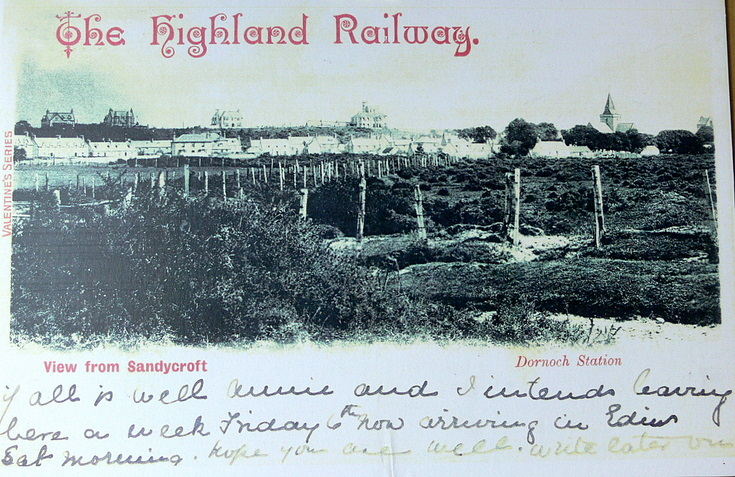 The Highland Railway.
VALENTINE'S SERIES
View from Sandycroft
Dornoch Station
if all is well Annie and I intends leaving
here a week Friday 6th Nov arriving in Edinr
Sat morning. hope you are well. write later on